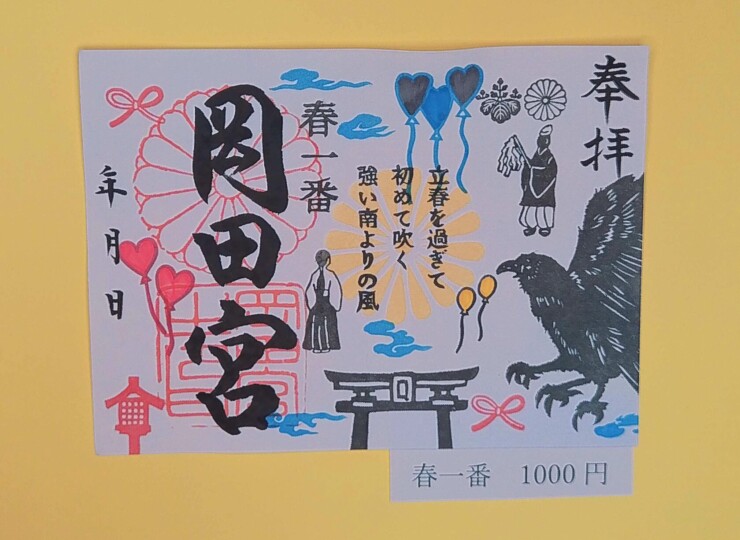 奉拝
立春を過ぎて
初めて吹く
強い南よりの風
春一番
岡田宮
年 月 日
春一番 1000円